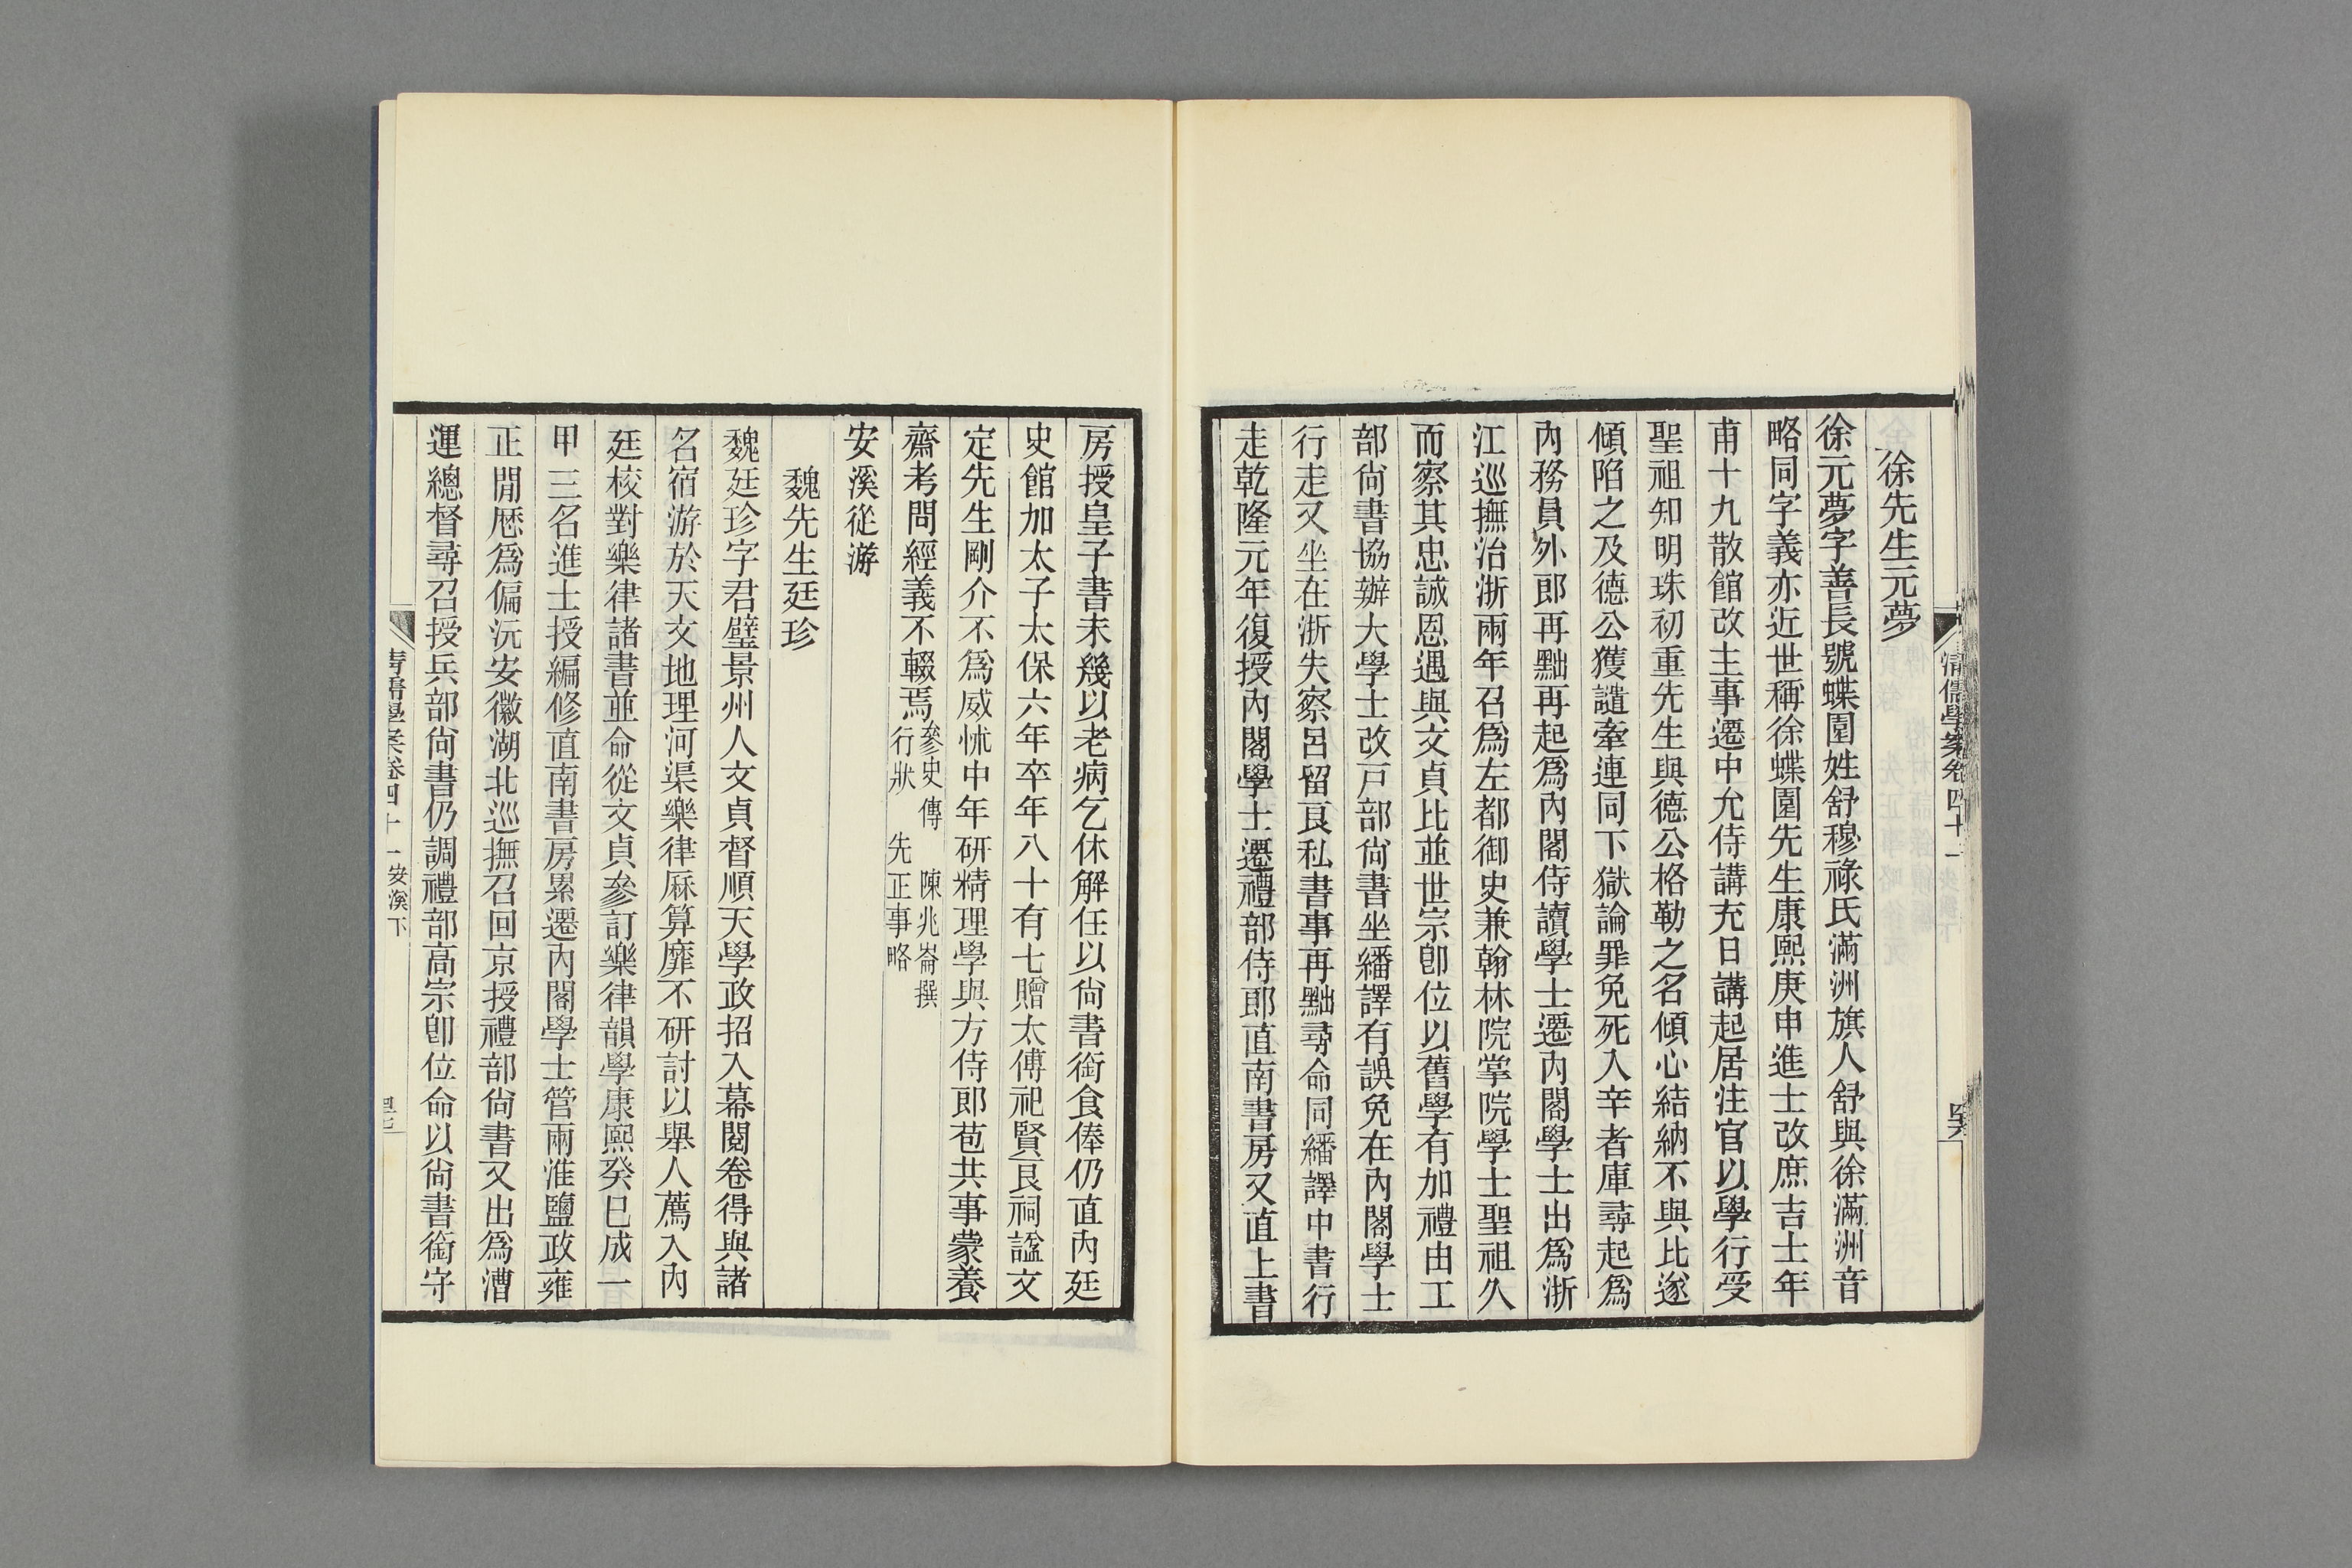 清儒學案卷四十一 安溪下
徐先生元夢
徐元夢字善長號蝶園姓舒穆祿氏滿洲旗人舒與徐滿洲音
略同字義亦近世稱徐蝶園先生康熙庚申進士改庶吉士年
甫十九散館改主事遷中允侍講充日講起居注官以學行受
聖祖知明珠初重先生與德公格勒之名傾心結納不與比遂
傾陷之及德公獲譴牽連同下獄論罪免死入辛者庫尋起爲
內務員外郎再黜再起爲內閣侍讀學士遷內閣學士出爲浙
江巡撫治浙兩年召爲左都御史兼翰林院掌院學士聖祖久
而察其忠誠恩遇與文貞比並世宗卽位以舊學有加禮由工
部尙書協辦大學士改戶部尙書坐繙譯有誤免在內閣學士
行走又坐在浙失察呂留良私書事再黜尋命同繙譯中書行
走乾隆元年復授內閣學士遷禮部侍郎直南書房又直上書
房授皇子書未幾以老病乞休解任以尙書銜食俸仍直內廷
史館加太子太保六年卒年八十有七贈太傅祀賢良祠諡文
定先生剛介不爲威怵中年硏精理學與方侍郎苞共事蒙養
齋考問經義不輟焉參史傳 陳兆崙撰行狀 先正事略
安溪從游
魏先生廷珍
魏廷珍字君璧景州人文貞督順天學政招入幕閱卷得與諸
名宿游於天文地理河渠樂律厤算靡不硏討以舉人薦入內
廷校對樂律諸書並命從文貞參訂樂律韻學康熙癸巳成一
甲三名進士授編修直南書房累遷內閣學士管兩淮鹽政雍
正閒厯爲偏沅安徽湖北巡撫召回京授禮部尙書又出爲漕
運總督尋召授兵部尙書仍調禮部高宗卽位命以尙書銜守
清儒學案卷四十一 安溪下